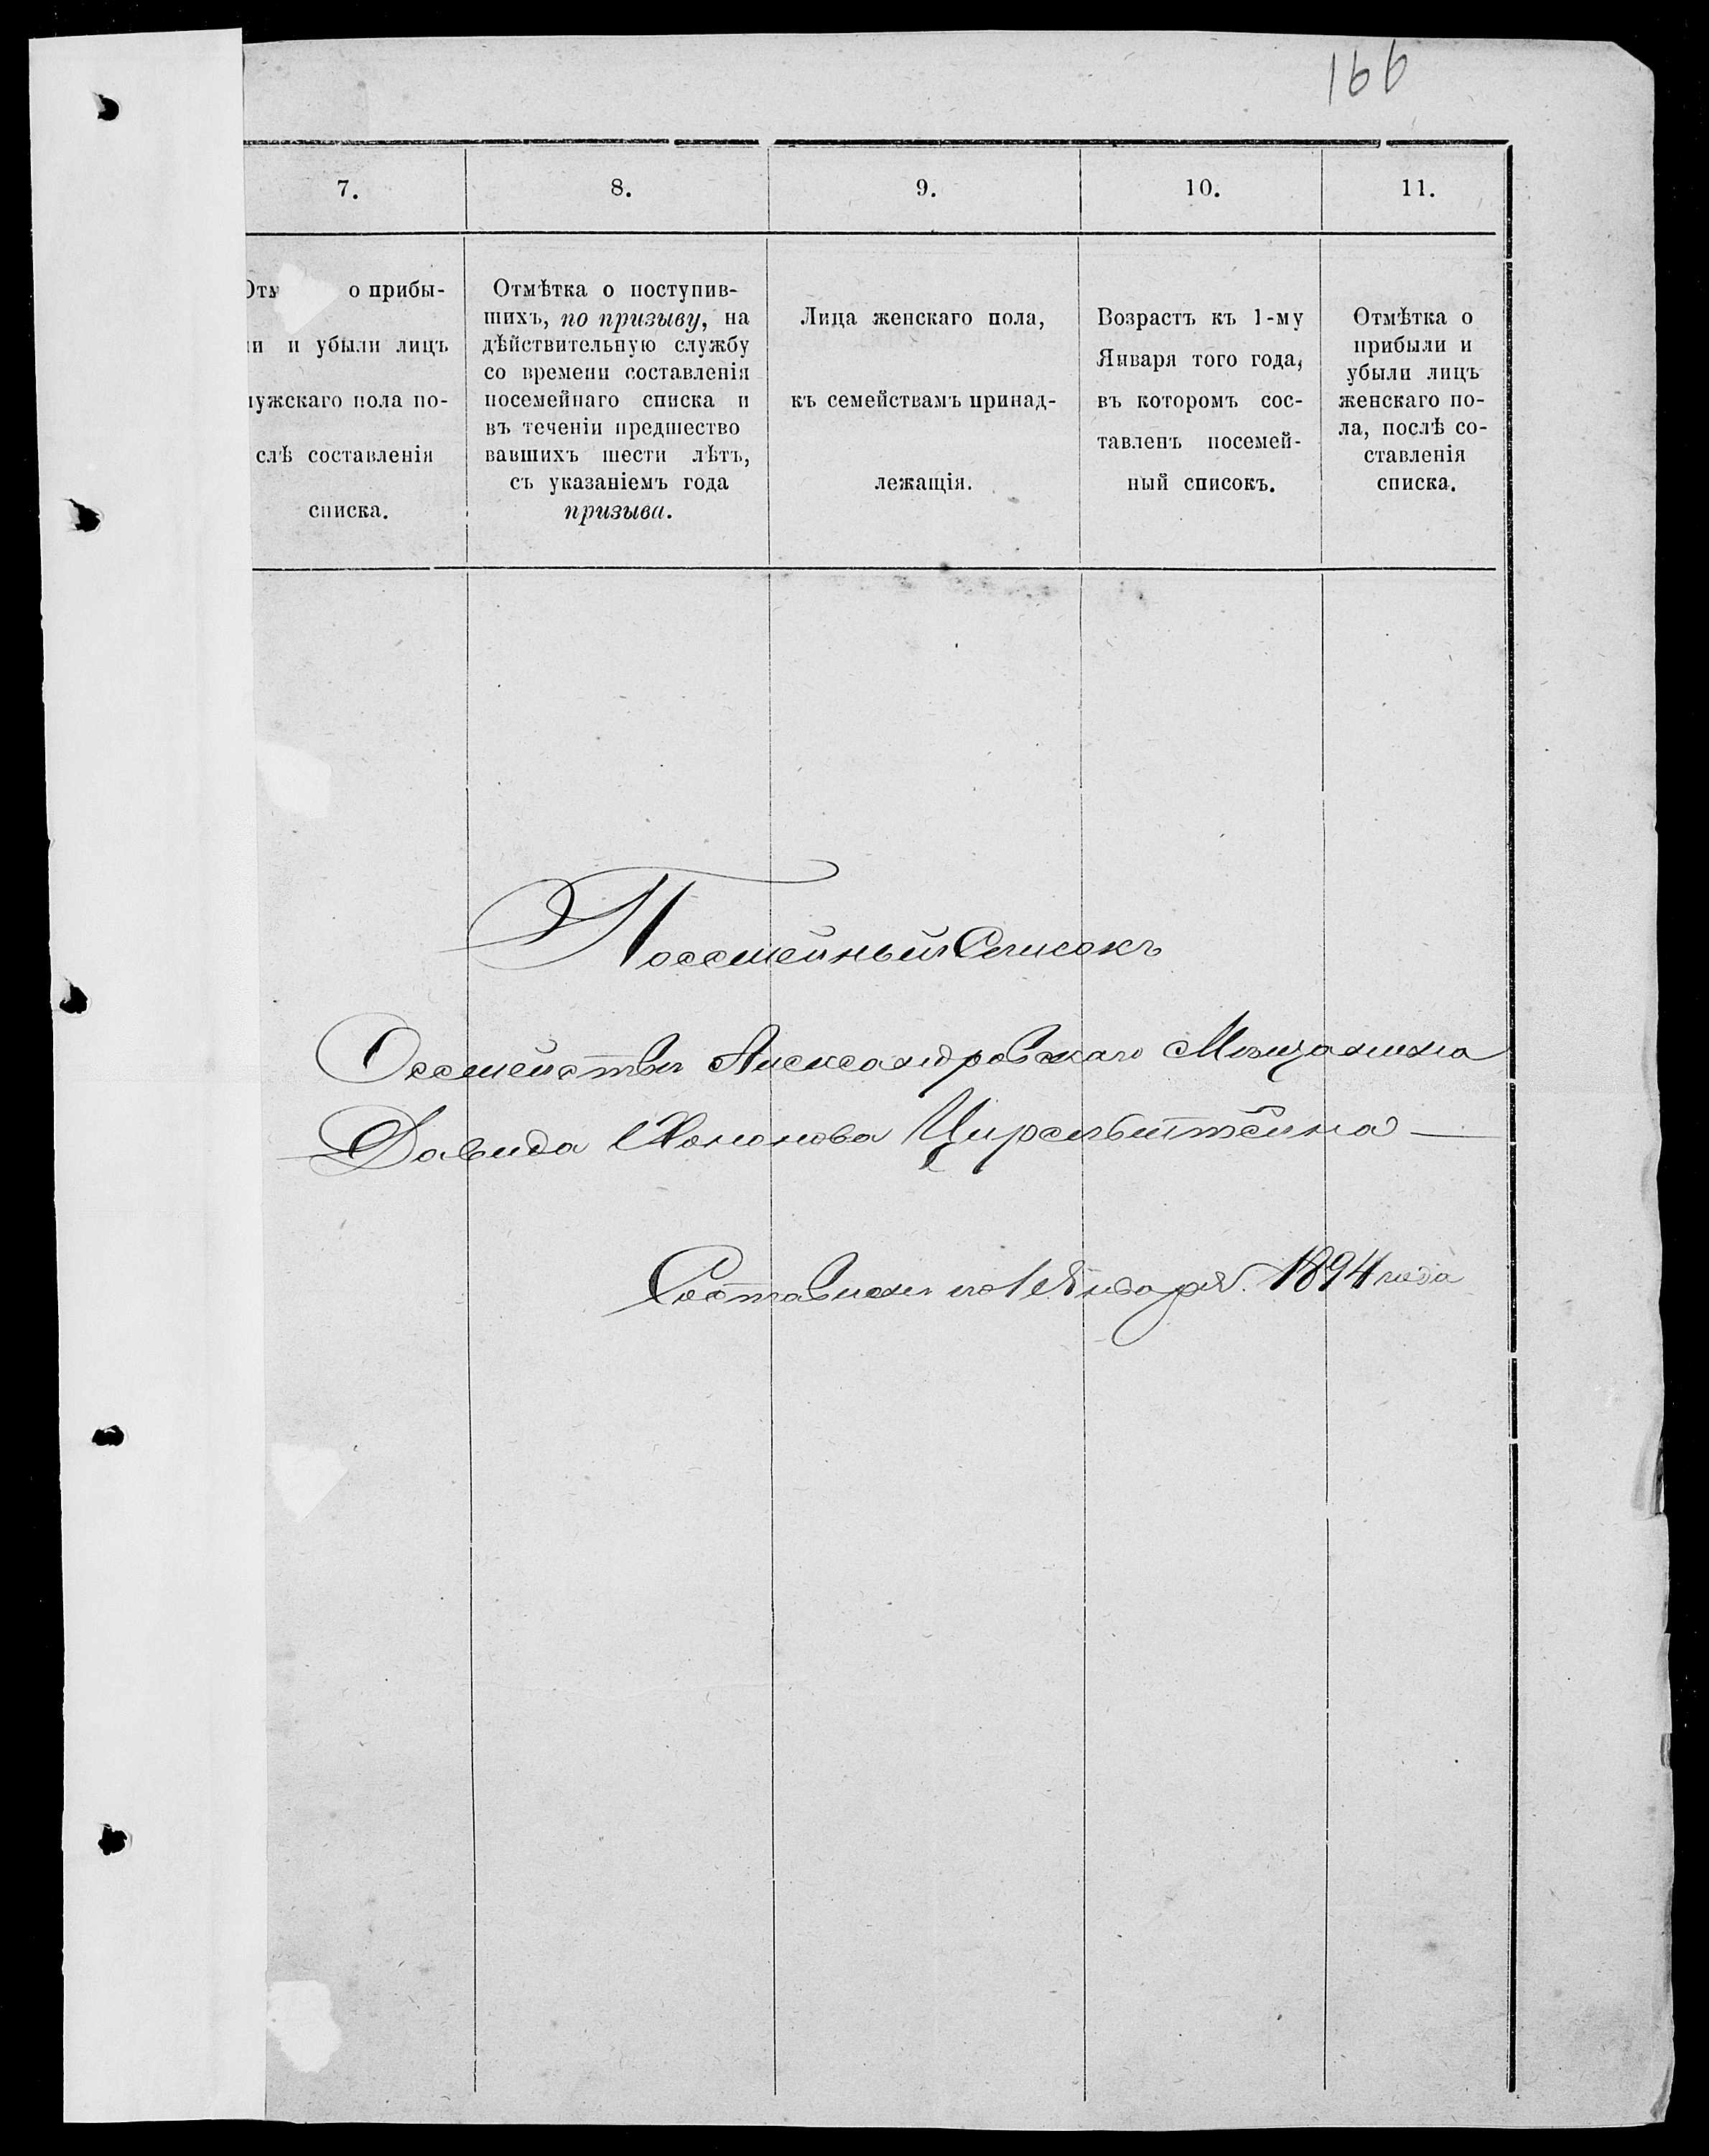 166
7. 8. 9. 10. 11.
Отм о прибы-
и и убыли лицъ
ужскаго пола по-
слѣ составленія
списка.
Отмѣтка о поступив-
шихъ, по призыву, на
дѣйствительную службу
со времени составленія
посемейнаго списка и
въ теченіи предшество
вавшихъ шести лѣтъ,
съ указаніемъ года
призыва.
Лица женскаго пола,
къ семействамъ принад-
лежащія.
Возрастъ къ 1-му
Января того года,
въ которомъ сос-
тавленъ посемей-
ный списокъ.
Отмѣтка о
прибыли и
убыли лицъ
женскаго по-
ла, послѣ со-
ставленія
списка.
Посемейный Списокъ
О семействѣ Александровскаго Мѣщанина
Давида Хононова Цирельштейна —
Составленъ на 1 Января 1894 года